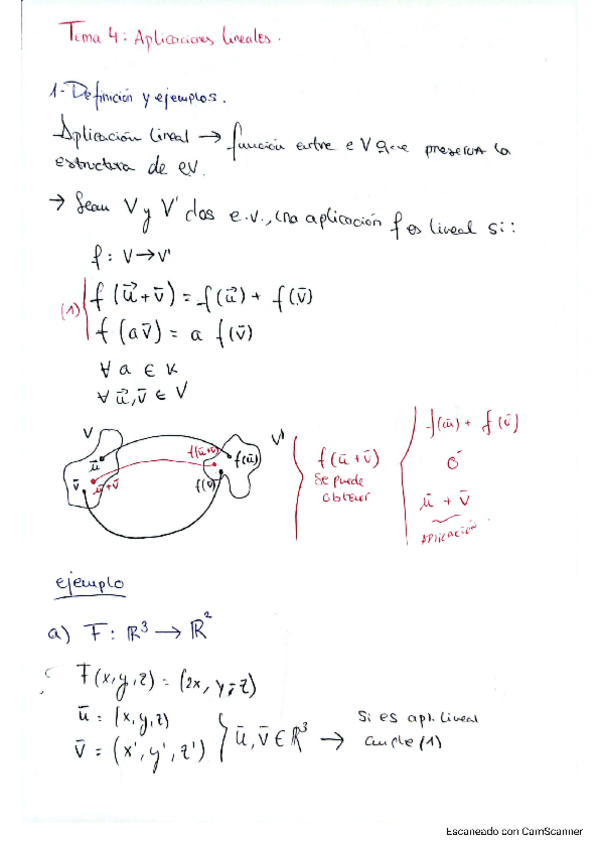 Tema 4: Aplicaciones lineales.
1- Definición y ejemplos.
Aplicación lineal → función entre e V que preserva la
estructura de eV.
→ Sean V y V' dos e.v., una aplicación f es lineal si:
f: V → V'
(1) f(u⃗+v̄) = f(u⃗) + f(v̄)
f(av̄) = a f(v̄)
∀ a ∈ K
∀ u⃗,v̄ ∈ V
V
V'
ū
v̄
ū+v̄
f(ū+v̄)
f(ū)
f(v̄)
f(ū+v̄)
Se puede
obtener
f(ū) + f(v̄)
ó
ū + v̄
APLICACIÓN
ejemplo
a) F: ℝ³ → ℝ²
F(x,y,z) = (2x, y-z)
ū = (x,y,z)
v̄ = (x',y',z') } ū,v̄ ∈ ℝ³ →
Si es apl. lineal
cumple (1)
Escaneado con CamScanner